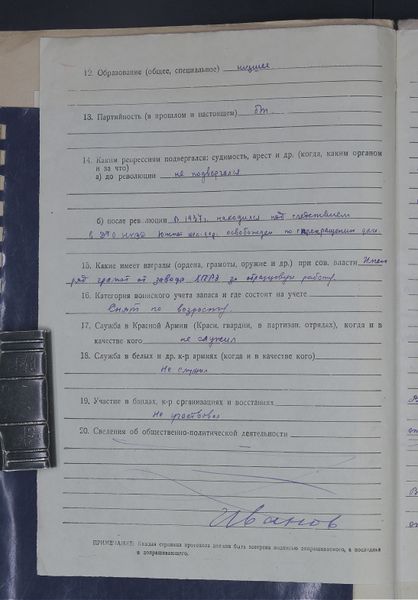 12. Образование (общее, специальное) низшее
13. Партийность (в прошлом и настоящем) б/п
14. Каким репрессиям подвергался: судимость, арест и др. (когда, каким органом
и за что)
а) до революции не подвергался
б) после революции В 1937г. находился под следствием
в ДТО НКВД Южной жел.дор. освобожден по прекращении дела.
15. Какие имеет награды (ордена, грамоты, оружие и др.) при сов. власти Имеет
ряд грамот от завода за образцовую работу.
16. Категория воинского учета запаса и где состоит на учете
Снят по возрасту.
17. Служба в Красной Армии (Красн. гвардии, в партизан. отрядах), когда и в
качестве кого не служил
18. Служба в белых и др. к-р армиях (когда и в качестве кого)
Не служил
19. Участие в бандах, к-р организациях и восстаниях
Не участвовал
20. Сведения об общественно-политической деятельности
Иванов
ПРИМЕЧАНИЕ: Каждая страница протокола должна быть заверена подписью допрашиваемого, а последняя
и допрашивающего.